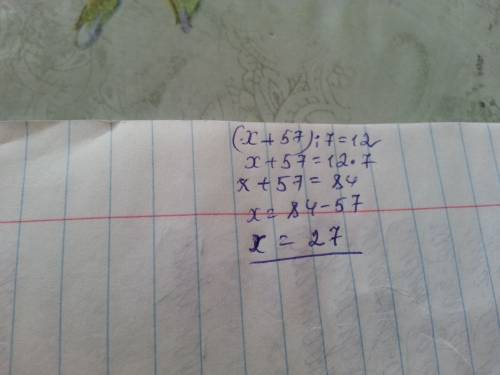 (x+57):7=12
x+57=12·7
x+57=84
x=84-57
x=27